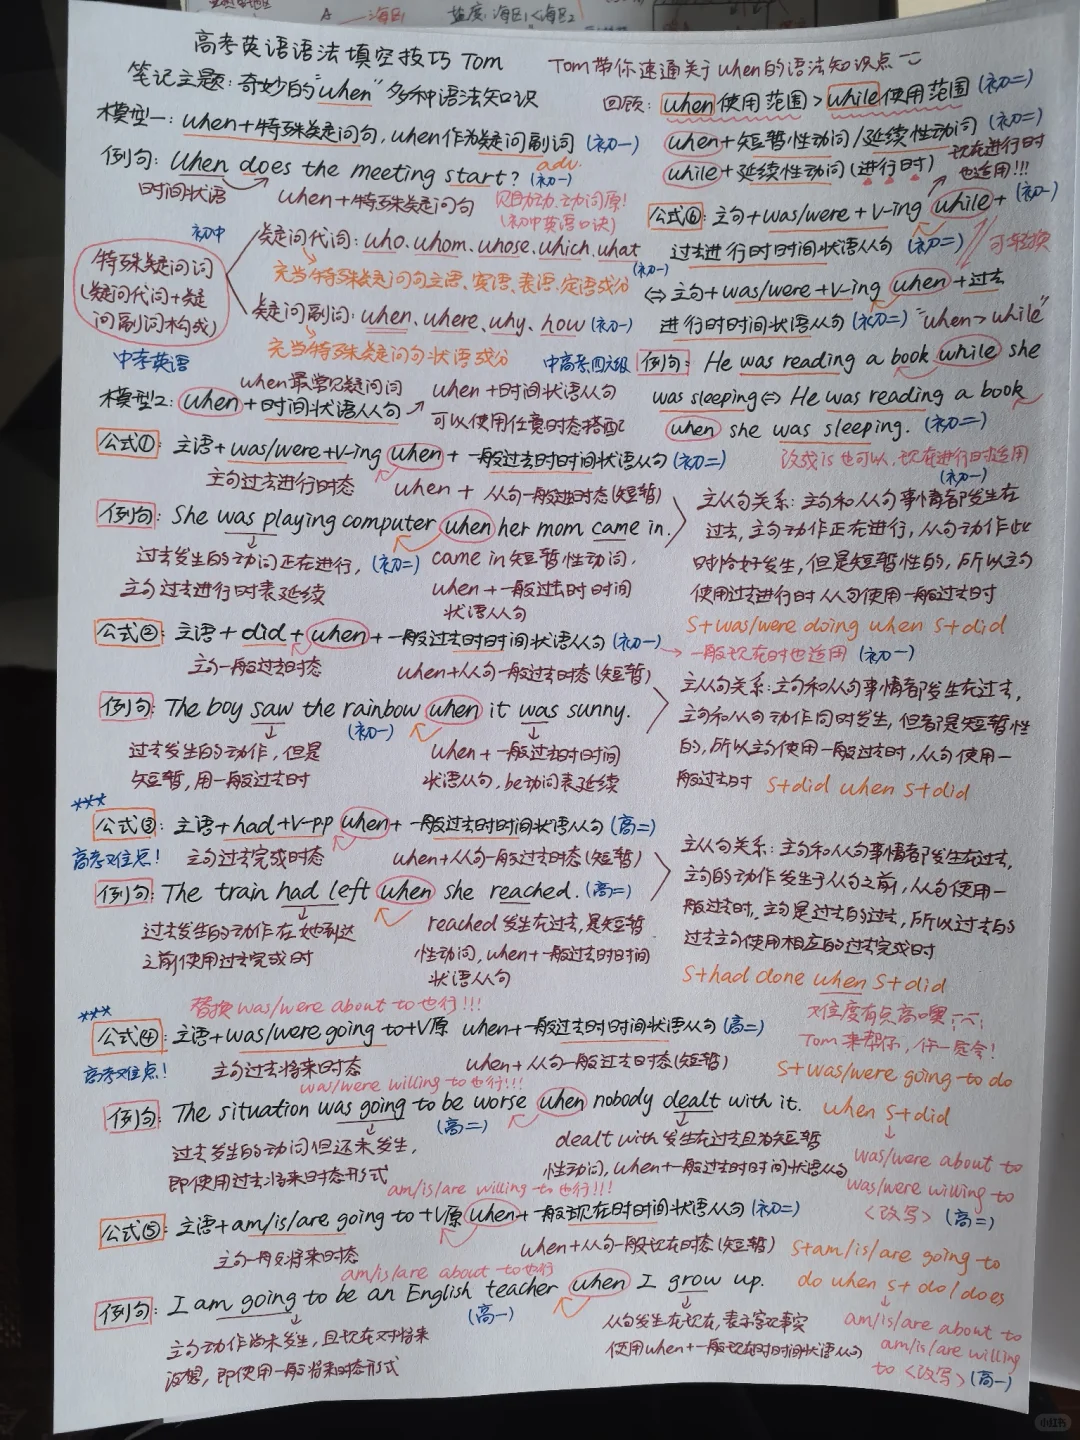 盐度:海区1<海区2
A — 海区1
高考英语语法填空技巧 Tom
Tom带你速通关于when的语法知识点
笔记主题:奇妙的"when"多种语法知识
回顾: when使用范围>while使用范围(初二)
模型一: when+特殊疑问句,when作为疑问副词(初一)
adv.
when+短暂性动词/延续性动词(初二)
例句: When does the meeting start?(初一)
while+延续性动词(进行时)
现在进行时
也适用!!!
时间状语
when+特殊疑问句
见助动,动词原!
(初中英语口诀)
公式⑥: 主句+was/were+V-ing while+(初一)
过去进行时时间状语从句(初二)
可转换
初中
疑问代词: who.whom.whose.which.what
(初一)
充当特殊疑问句主语、宾语、表语、定语成分
特殊疑问词
(疑问代词+疑
问副词构成)
⇔主句+was/were+V-ing when+过去
疑问副词: when、where、why、how(初一)
进行时时间状语从句(初二)"when>while"
充当特殊疑问句状语成分
中考英语
中高考四六级
例句: He was reading a book while she
when最常见疑问词
when+时间状语从句
模型2: when+时间状语从句
可以使用任意时态搭配
was sleeping⇔ He was reading a book
when she was sleeping.(初二)
公式①: 主语+was/were+V-ing when+一般过去时时间状语从句(初二)
改成is也可以,现在进行时适用
(初一)
主句过去进行时态
when+从句一般过去时态(短暂)
例句: She was playing computer when her mom came in.
主从句关系:主句和从句事情都发生在
过去,主句动作正在进行,从句动作此
时恰好发生,但是短暂性的,所以主句
使用过去进行时从句使用一般过去时
S+was/were doing when S+did
过去发生的动词正在进行,(初二)
主句过去进行时表延续
came in短暂性动词,
when+一般过去时时间
状语从句
公式②: 主语+did+when+一般过去时时间状语从句(初一)
一般现在时也适用(初一)
主句一般过去时态
when+从句一般过去时态(短暂)
例句: The boy saw the rainbow when it was sunny.
(初一)
主从句关系:主句和从句事情都发生在过去,
主句和从句动作同时发生,但都是短暂性
的,所以主句使用一般过去时,从句使用一
般过去时
S+did when S+did
过去发生的动作,但是
短暂,用一般过去时
when+一般过去时时间
状语从句,be动词表延续
***
公式③: 主语+had+V-pp when+一般过去时时间状语从句(高二)
高考难点!
主句过去完成时态
when+从句一般过去时态(短暂)
例句: The train had left when she reached.(高二)
主从句关系:主句和从句事情都发生在过去,
主句的动作发生于从句之前,从句使用一
般过去时,主句是过去的过去,所以过去的
过去主句使用相应的过去完成时
S+had done when S+did
过去发生的动作在她到达
之前使用过去完成时
reached发生在过去,是短暂
性动词,when+一般过去时时间
状语从句
替换was/were about to也行!!!
***
公式④: 主语+was/were going to+V原 when+一般过去时时间状语从句(高二)
难度有点高噢
Tom来帮你,你一定会!
高考难点!
主句过去将来时态
when+从句一般过去时态(短暂)
was/were willing to也行!!!
S+was/were going to do
when S+did
例句: The situation was going to be worse when nobody dealt with it.
(高二)
过去发生的动词但还未发生,
即使用过去将来时态形式
dealt with发生在过去且为短暂
性动词,when+一般过去时时间状语从句
was/were about to
was/were willing to
<改写>(高二)
am/is/are willing to也行!!!
公式⑤: 主语+am/is/are going to+V原 when+一般现在时时间状语从句(初二)
主句一般将来时态
when+从句一般现在时态(短暂)
am/is/are about to也行
S+am/is/are going to
do when S+do/does
例句: I am going to be an English teacher when I grow up.
(高一)
主句动作尚未发生,且现在对将来
设想,即使用一般将来时态形式
从句发生在现在,表示客观事实
使用when+一般现在时时间状语从句
am/is/are about to
am/is/are willing
to <改写>(高一)
小红书